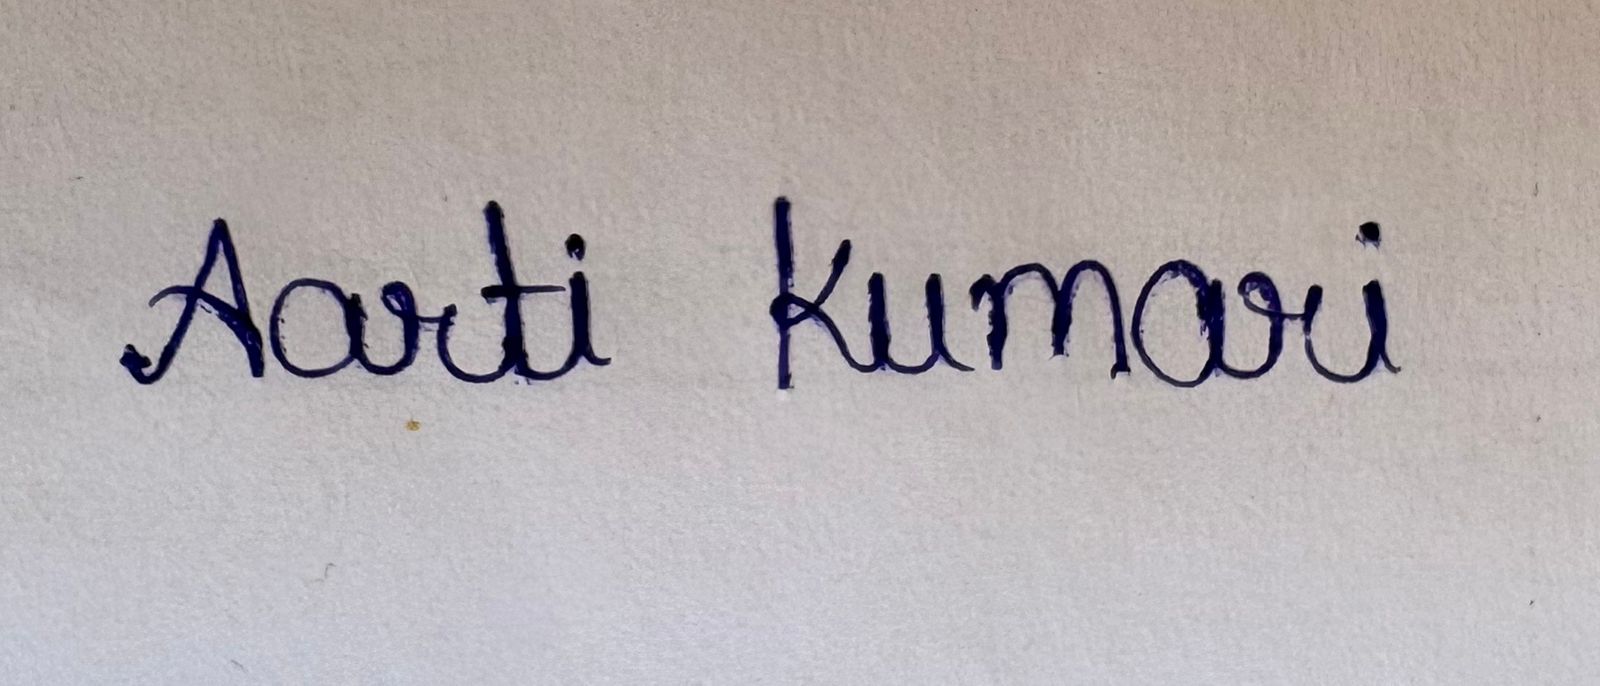 Aarti Kumari